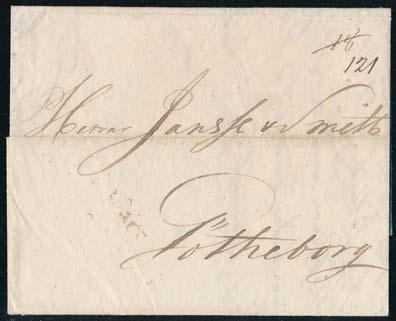 121
Herrar Jansse & Smith
Götheborg